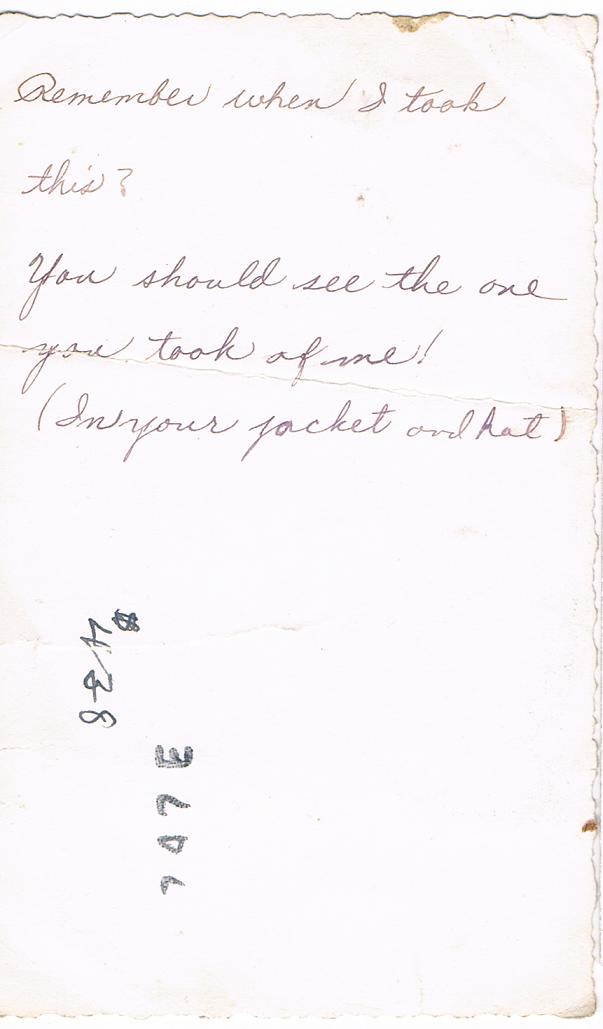 Remember when I took
this?
You should see the one
you took of me!
(In your jacket and hat)